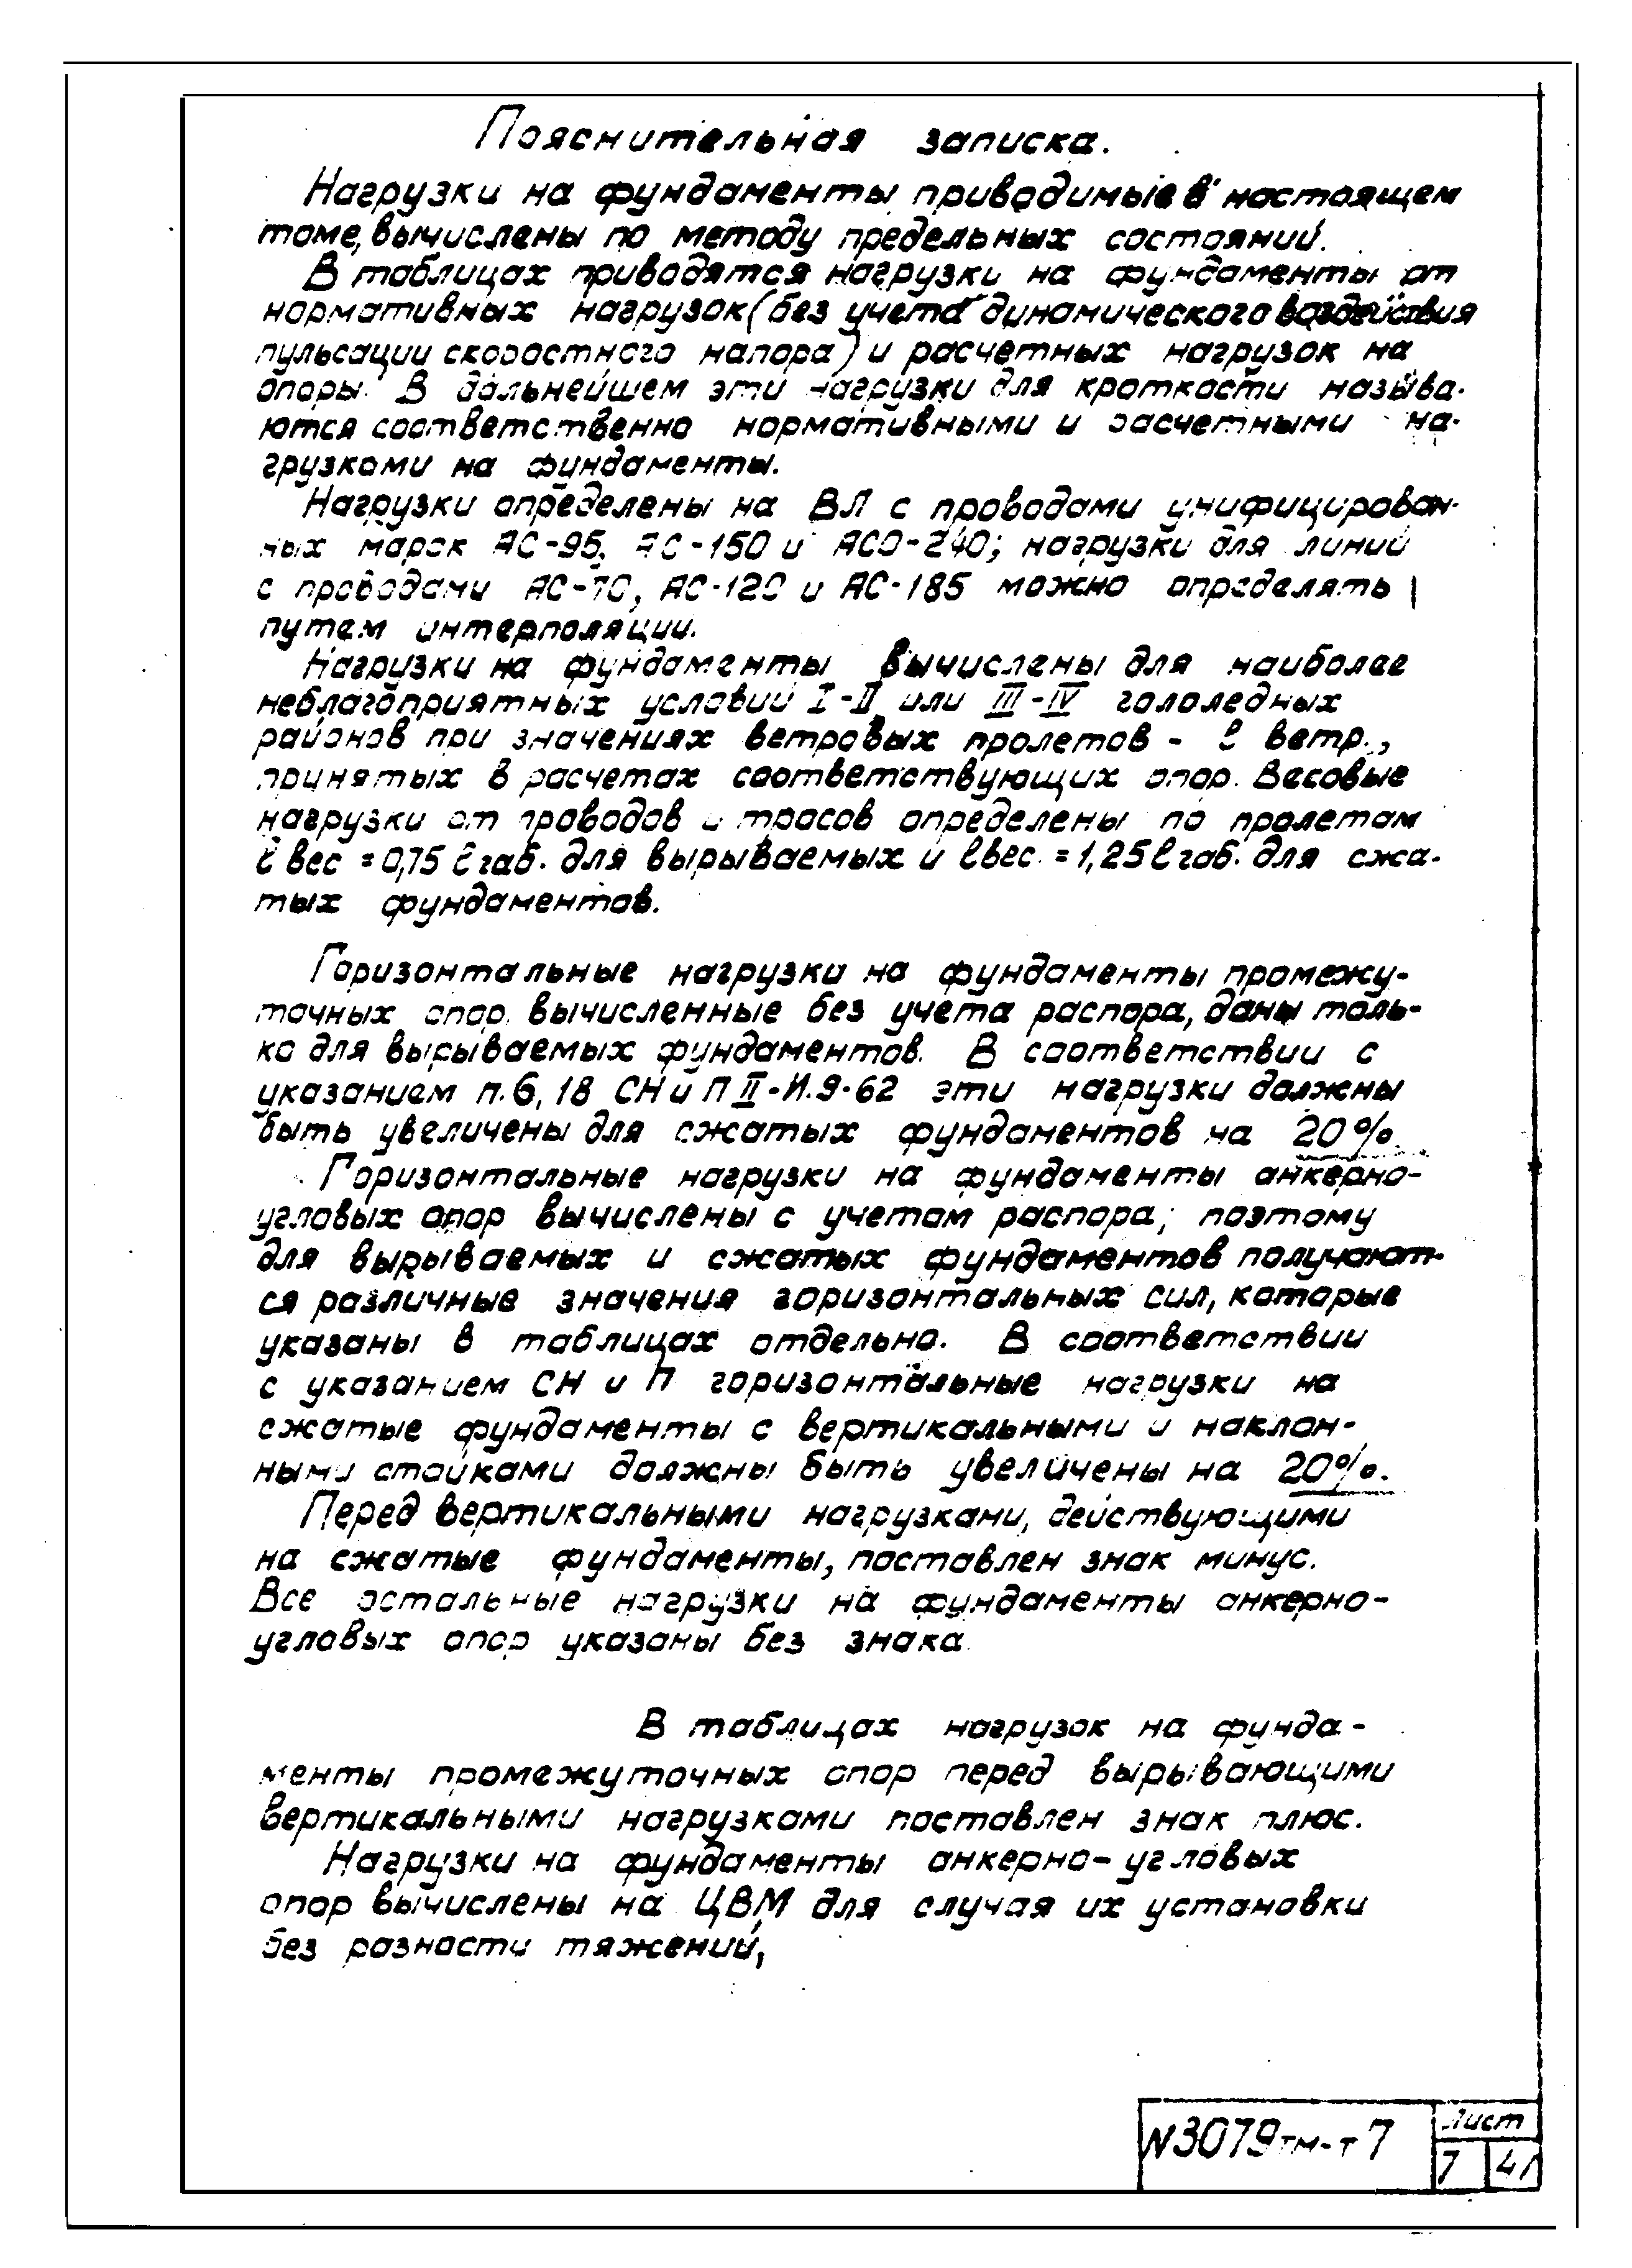 Пояснительная записка.
Нагрузки на фундаменты приводимые в настоящем
томе, вычислены по методу предельных состояний.
В таблицах приводятся нагрузки на фундаменты от
нормативных нагрузок (без учета динамического воздействия
пульсации скоростного напора) и расчетных нагрузок на
опоры. В дальнейшем эти нагрузки для краткости называ-
ются соответственно нормативными и расчетными на-
грузками на фундаменты.
Нагрузки определены на ВЛ с проводами унифицирован-
ных марок АС-95, АС-150 и АСО-240; нагрузки для линий
с проводами АС-70, АС-120 и АС-185 можно определять
путем интерполяции.
Нагрузки на фундаменты вычислены для наиболее
неблагоприятных условий I-II или III-IV гололедных
районов при значениях ветровых пролетов - ℓ ветр.,
принятых в расчетах соответствующих опор. Весовые
нагрузки от проводов и тросов определены по пролетам
ℓ вес = 0,75 ℓ габ. для вырываемых и ℓ вес. = 1,25 ℓ габ. для сжа-
тых фундаментов.
Горизонтальные нагрузки на фундаменты промежу-
точных опор, вычисленные без учета распора, даны толь-
ко для вырываемых фундаментов. В соответствии с
указанием п. 6,18 СН и П II-И.9-62 эти нагрузки должны
быть увеличены для сжатых фундаментов на 20%.
Горизонтальные нагрузки на фундаменты анкерно-
угловых опор вычислены с учетом распора; поэтому
для вырываемых и сжатых фундаментов получают-
ся различные значения горизонтальных сил, которые
указаны в таблицах отдельно. В соответствии
с указанием СН и П горизонтальные нагрузки на
сжатые фундаменты с вертикальными и наклон-
ными стойками должны быть увеличены на 20%.
Перед вертикальными нагрузками, действующими
на сжатые фундаменты, поставлен знак минус.
Все остальные нагрузки на фундаменты анкерно-
угловых опор указаны без знака.
В таблицах нагрузок на фунда-
менты промежуточных опор перед вырывающими
вертикальными нагрузками поставлен знак плюс.
Нагрузки на фундаменты анкерно-угловых
опор вычислены на ЦВМ для случая их установки
без разности тяжений,
N3079тм-т7
Лист
7 41